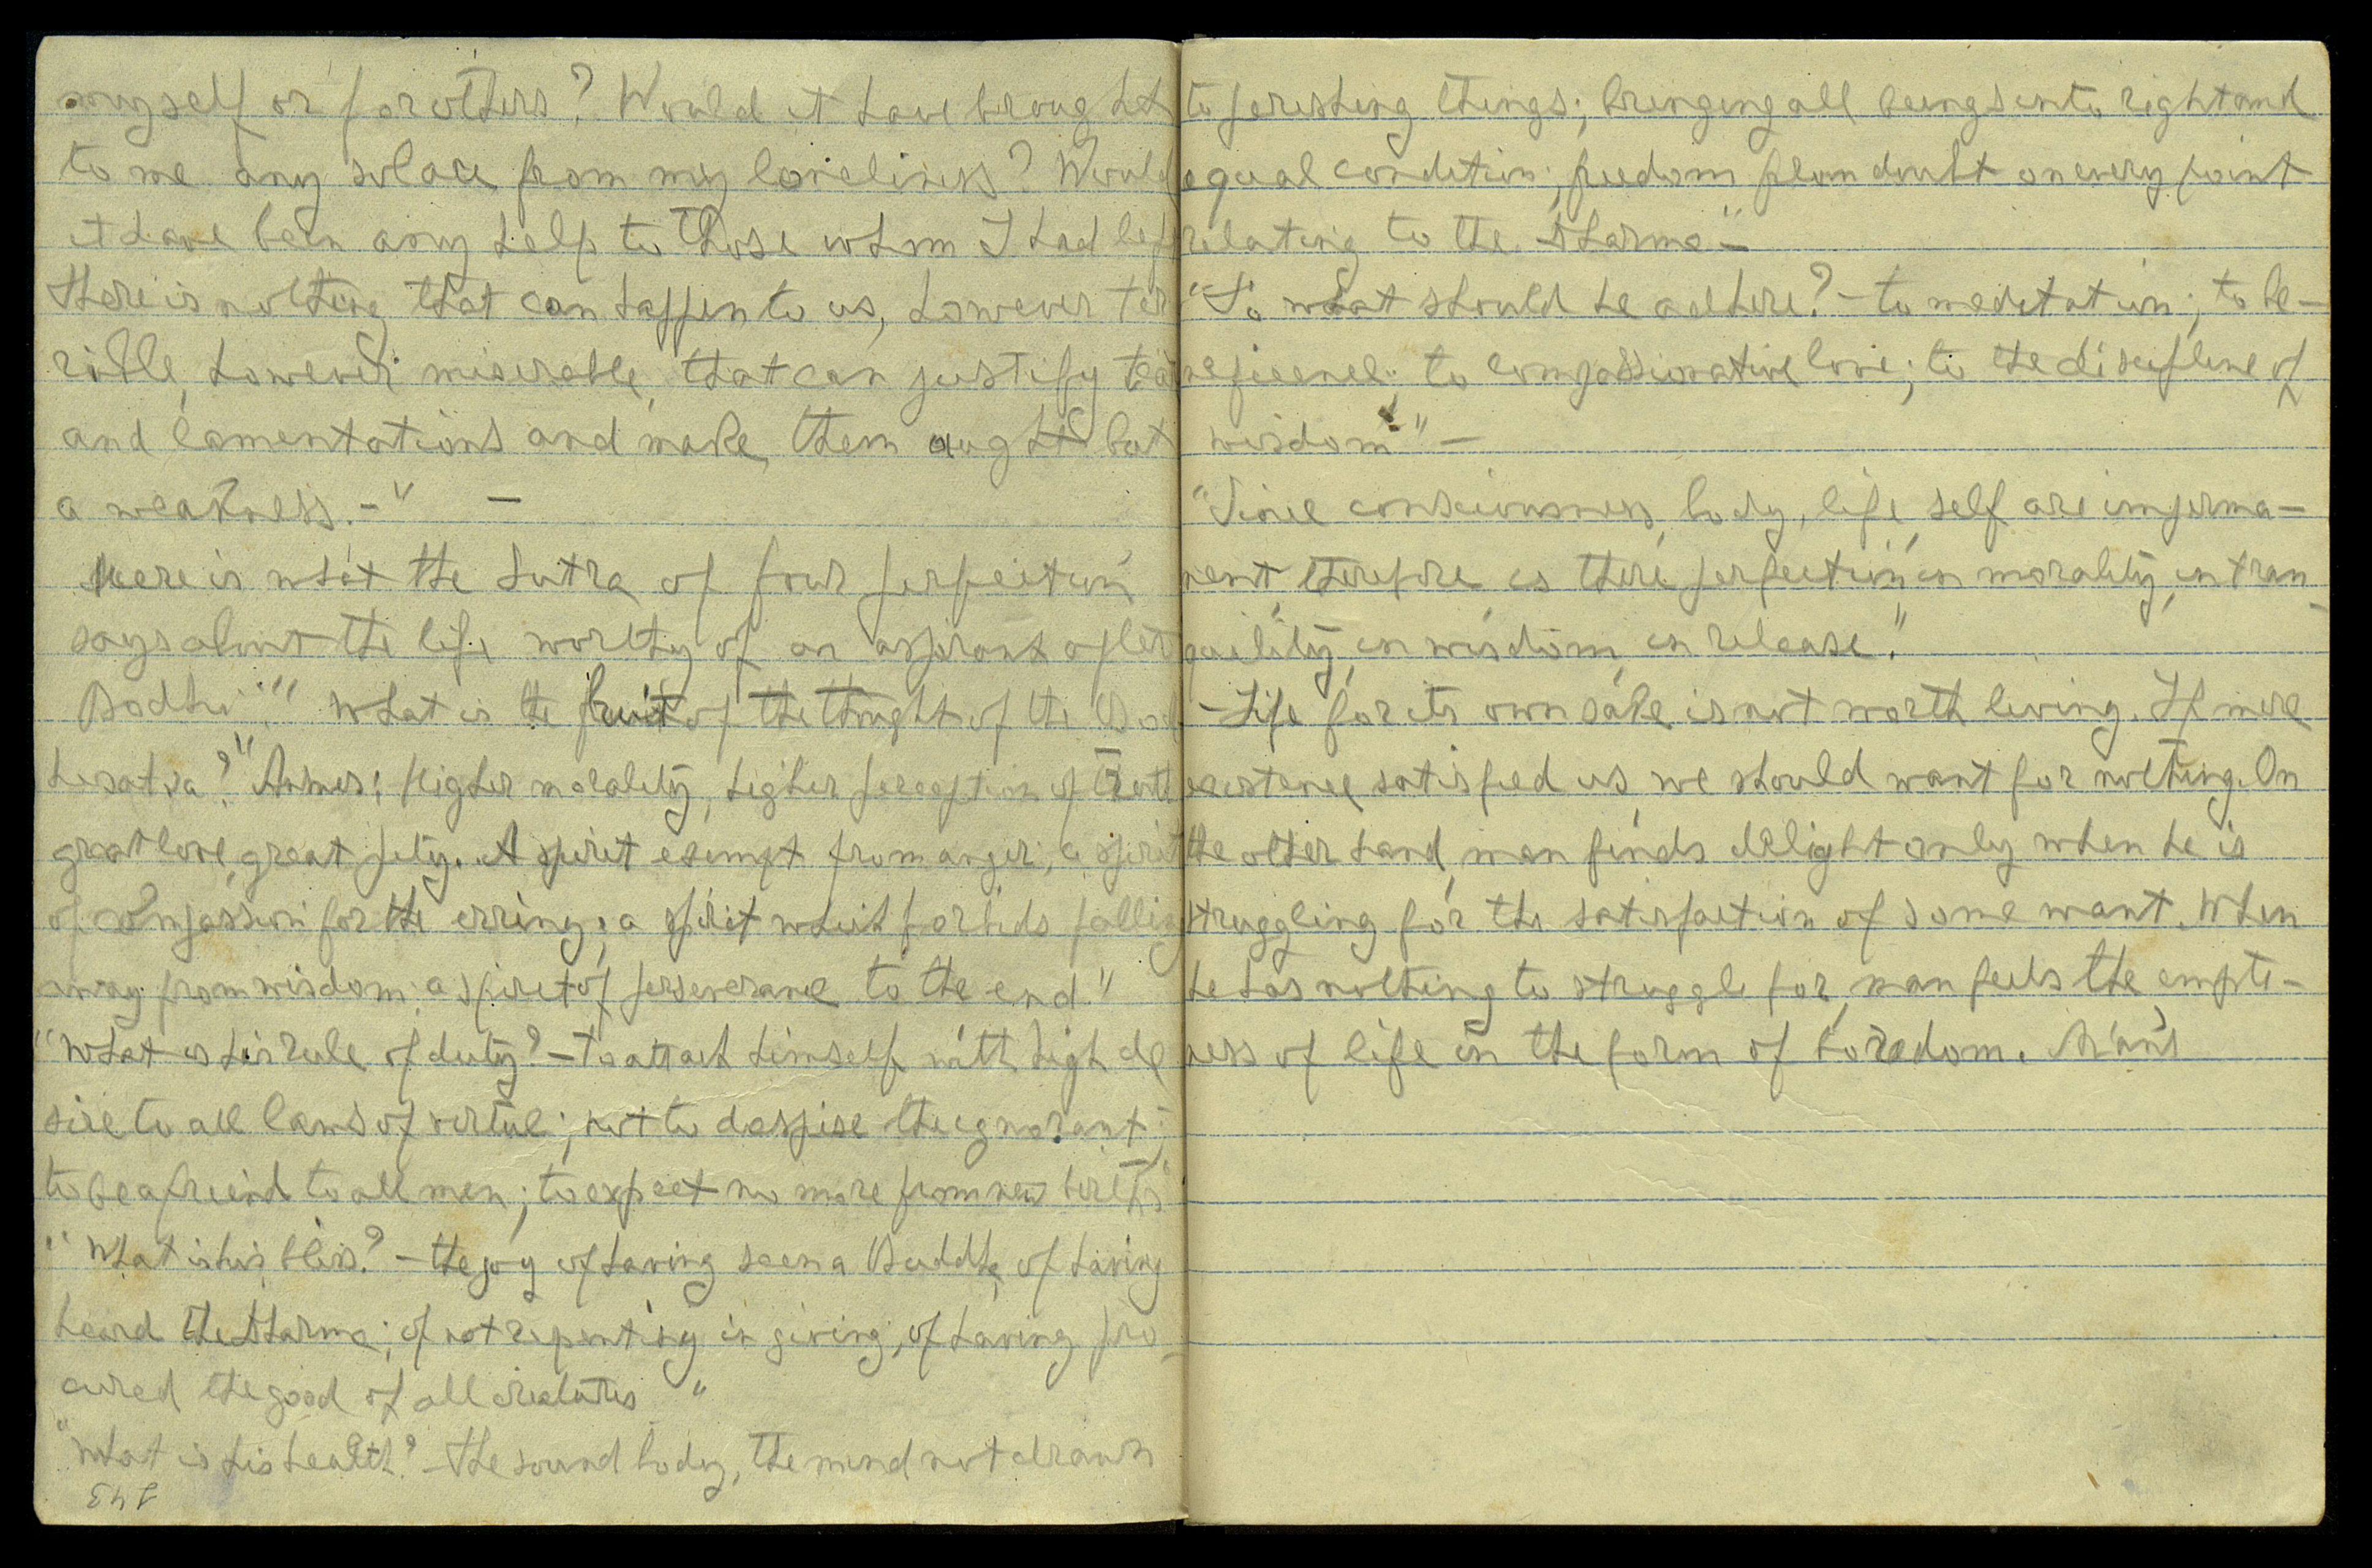 myself or for others? Would it have brought
to me any solace from my loneliness? Would
it have been any help to those whom I had left
there is nothing that can happen to us, however ter
rible, however miserable, that can justify tea
and lamentations and make them aught but
a weakness.-" -
Here is what the Sutra of four perfection
says about the life worthy of an aspirant after
Bodhi: "What is the fruit of the thought of the Bod
hisatva?" Answer: Higher morality, higher perception of truth
great love, great pity. A spirit exempt from anger; a spirit
of compassion for the erring; a spirit which forbids falling
away from wisdom; a spirit of perseverance to the end."
"What is his rule of duty? - To attach himself with high de
sire to all laws of virtue; not to despise the ignorant;
to be a friend to all men; to expect no more from new births"
"What is his bliss? - the joy of having seen a Buddha, of having
heard the dharma; of not repenting in giving; of having pro-
cured the good of all creatures"
"What is his health? - the sound body, the mind not drawn
143
to perishing things; bringing all beings into right and
equal condition; freedom from doubt on every point
relating to the dharma"-
"To what should he adhere? - to meditation; to be-
neficence; to compassionative love; to the discipline of
wisdom" -
"Since consciousness, body, life, self are imperma-
nent, therefore, is there perfection in morality, in tran-
quility, in wisdom, in release."
- Life for its own sake is not worth living. If mere
existence satisfied us, we should want for nothing. On
the other hand, man finds delight only when he is
struggling for the satisfaction of some want. When
he has nothing to struggle for, man feels the empti-
ness of life in the form of boredom. Man's